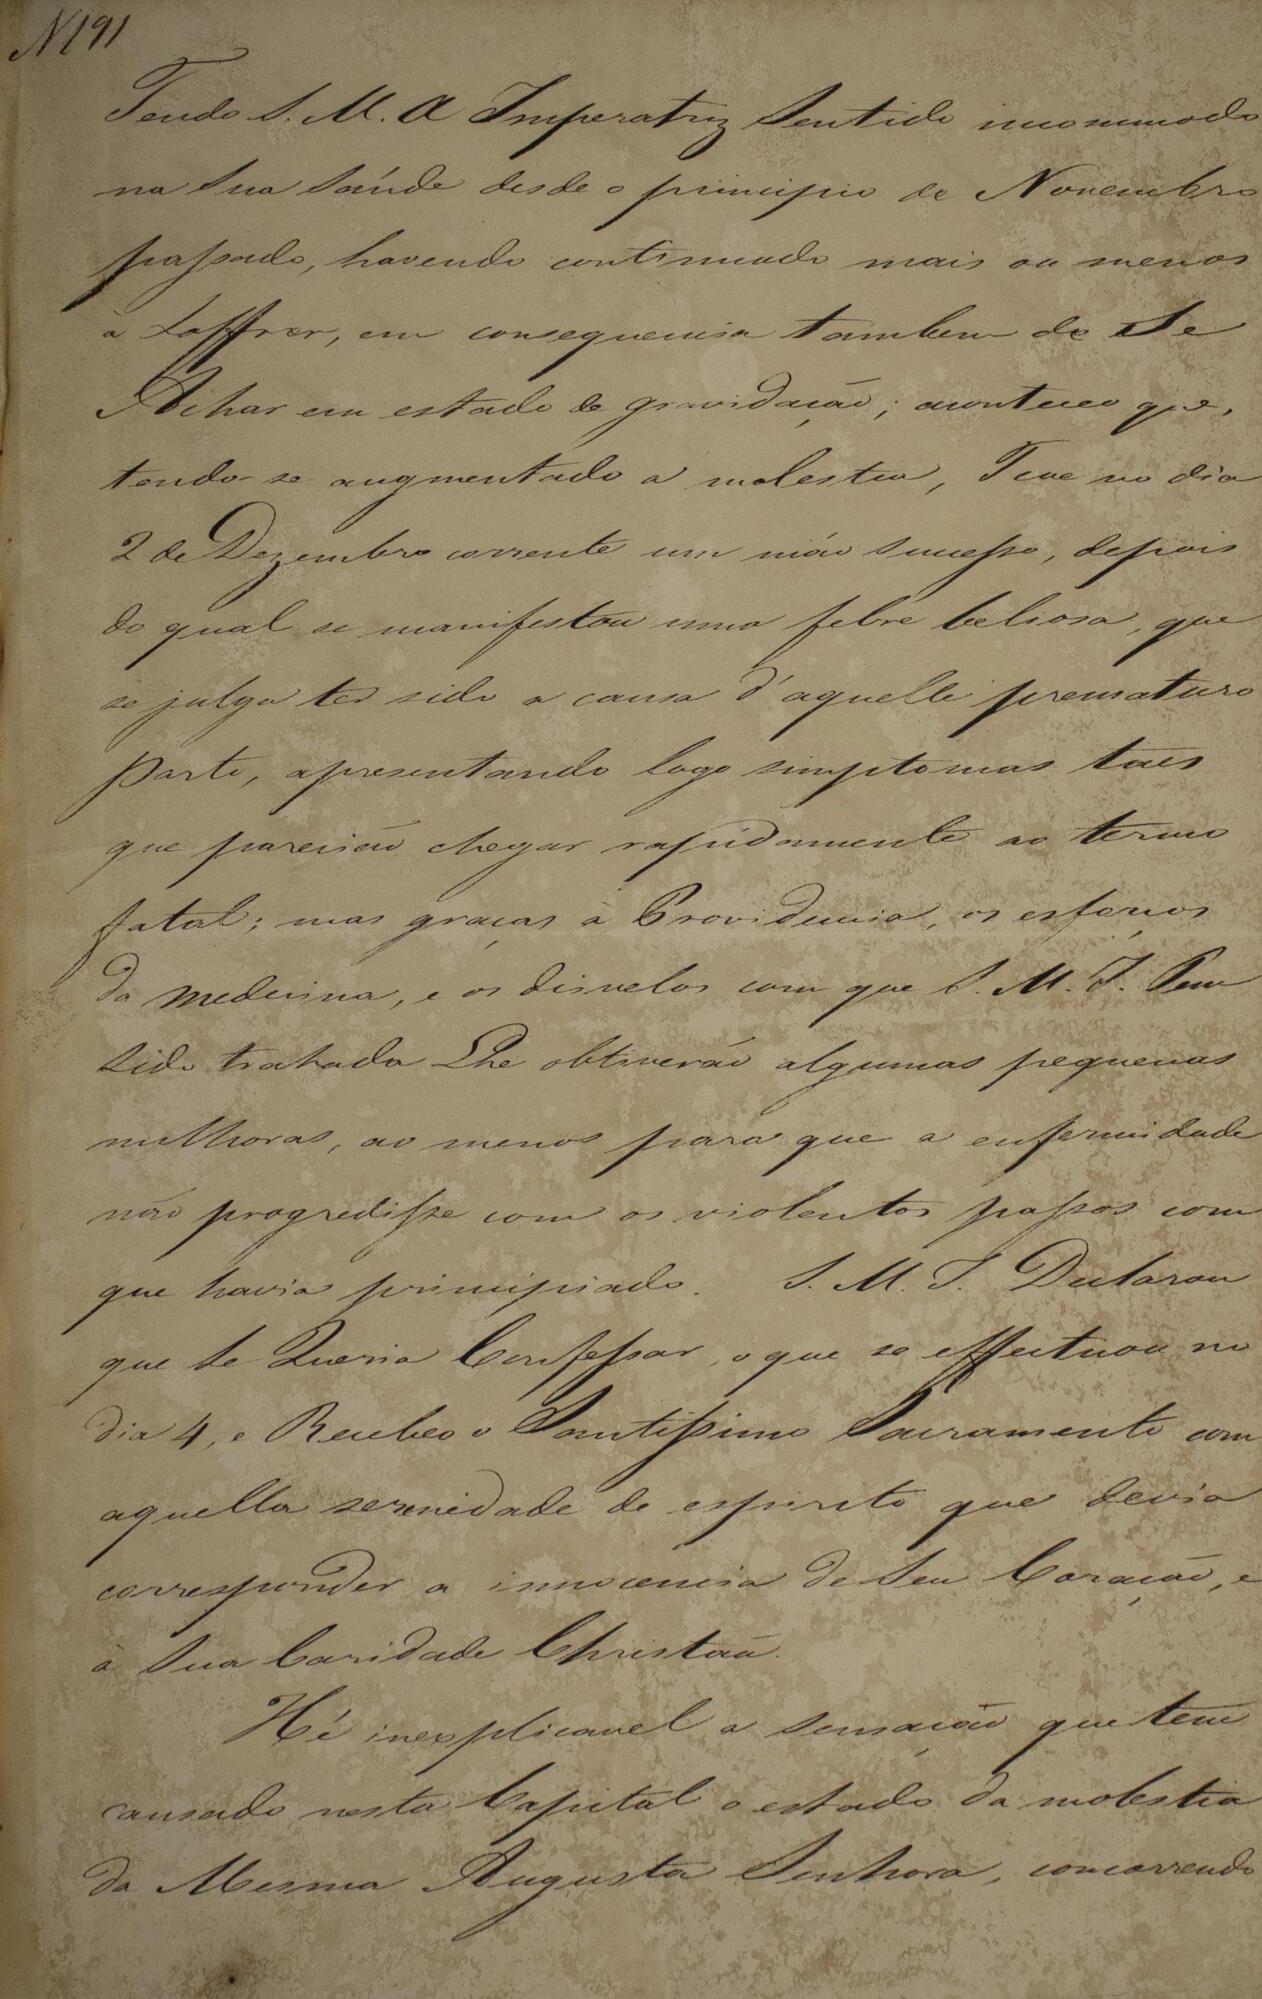 N 191
Tendo S. M. A Imperatriz Sentido incommodo
na Sua Saúde desde o principio de Novembro
passado, havendo continuado mais ou menos
à Soffrer, em consequencia tambem de Se
Achar em estado de gravidação; aconteceo que,
tendo-se augmentado a molestia, Teve no dia
2 de Dezembro corrente um máo sucesso, depois
do qual se manifestou uma febre beliosa, que
se julga ter sido a causa d'aquelle prematuro
parto, apresentando logo simptomas taes
que parecião chegar rapidamente ao termo
fatal; mas graças à Providencia, os esforços
da medecina, e os disvelos com que S. M. I. Tem
sido tratada Lhe obtiverão algumas pequenas
milhoras, ao menos para que a enfermidade
não progredisse com os violentos passos com
que havia principiado. S. M. I. Declarou
que Se Queria Confessar, o que se effectuou no
dia 4, e Recebeo o Santissimo Sacramento com
aquella serenidade de espirito que devia
corresponder a innocencia de Seu Coração, e
à Sua Caridade Christaã.
Hé inexplicavel a sensação que tem
causado nesta Capital o estado da molestia
da Mesma Augusta Senhora, concorrendo